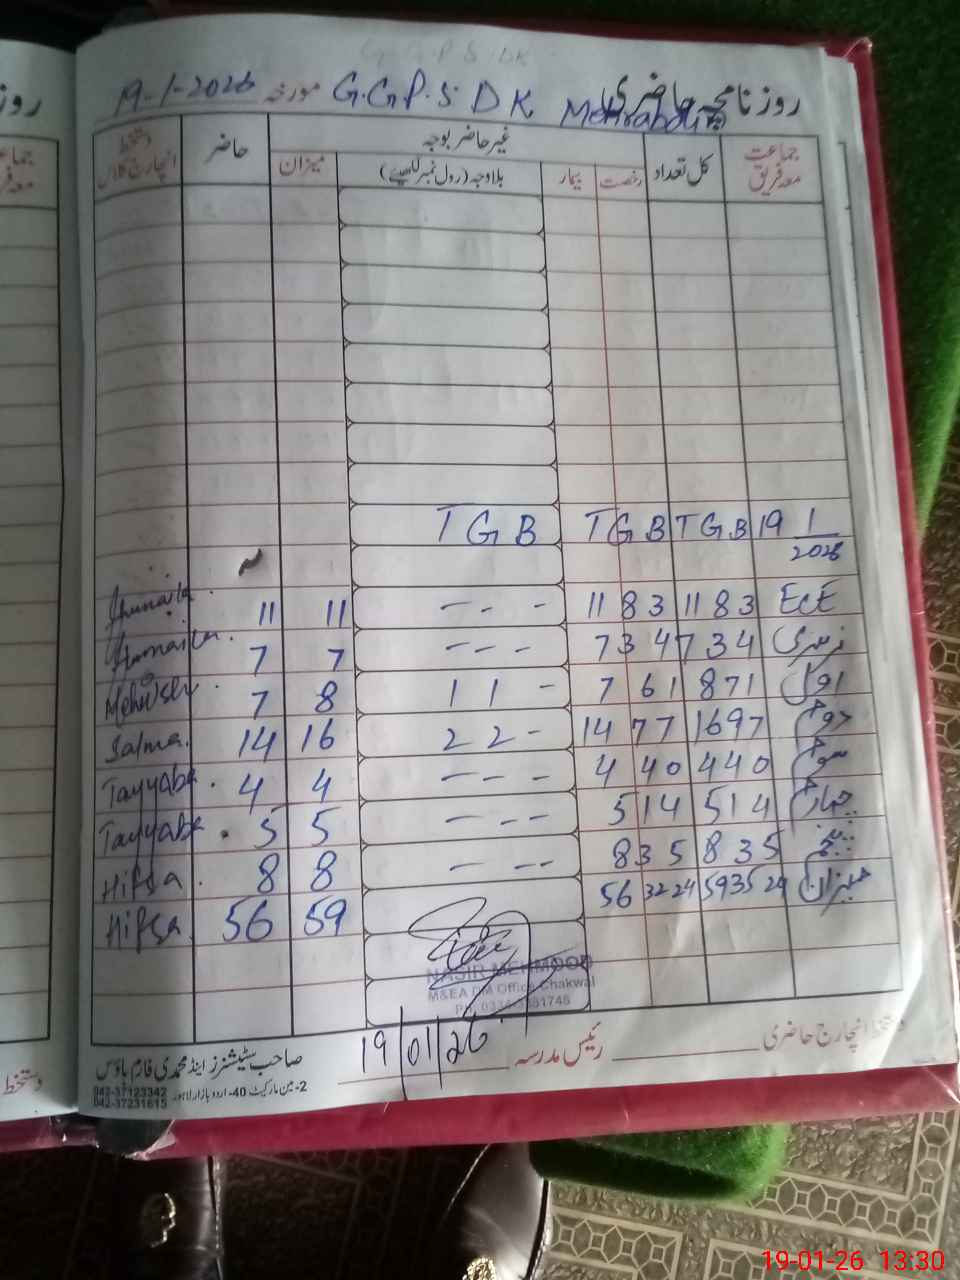 G.G.P.S DK
روزنامچہ حاضری G.G.P.S DK مورخہ 19-1-2026
جماعت معہ فریق
کل تعداد
غیر حاضر بوجہ
رخصت
بیمار
بلاوجہ (رول نمبر لکھیئے)
میزان
حاضر
دستخط انچارج کلاس
T G B T G B T G B 19 1/2026
Humaila 11 11 - - - 11 8 3 11 8 3 ECE
Humaila 7 7 - - - 7 3 4 7 3 4 نرسری
Mehwish 7 8 1 1 - 7 6 1 8 7 1 اول
Salma 14 16 2 2 - 14 7 7 16 9 7 دوم
Tayyaba 4 4 - - - 4 4 0 4 4 0 سوم
Tayyaba 5 5 - - - 5 1 4 5 1 4 چہارم
Hifsa 8 8 - - - 8 3 5 8 3 5 پنجم
Hifsa 56 59 56 32 24 59 35 24 میزان
NASIR MEHMOOD
M&EA DM Office Chakwal
19/01/26
دستخط انچارج حاضری
رئیس مدرسہ
صاحب سٹیشنرز اینڈ محمدی فارم ہاؤس
2-مین مارکیٹ 40-اردو بازار لاہور
042-37123342
042-37231615
روز
دستخط
19-01-26 13:30